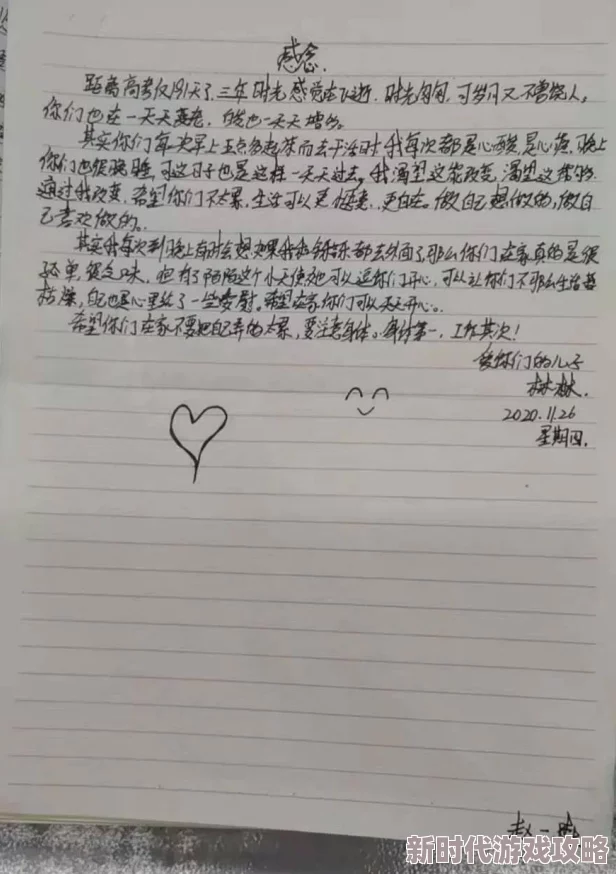 感念.
距离高考仅191天了,三年时光感觉在飞逝.时光匆匆,可岁月又不曾饶人。
你们也在一天天变老,我也一天天增多。
其实你们每次早上五点多起床而去干活时,我每次都是心酸,是心疼,晚上
你们也很晚睡,可这日子也是这样一天天过去,我渴望这能改变,渴望这能够
通过我改变,希望你们不太累,生活可以更惬意,更自在。做自己想做的,做自
己喜欢做的。
其实我每次到晚上有时会想如果我和都去外面了,那么你们在家真的是很
孤单,很乏味,但有了陌陌这个小天使,她可以逗你们开心,可以让你们不那么生活甚
枯燥,自己也是心里给了一些安慰。希望在家你们可以天天开心。
希望你们在家不要把自己弄的太累,要注意身体。身体第一,工作其次!
爱你们的儿子
林林.
2020.11.26
星期四.
赵一
新时代游戏攻略